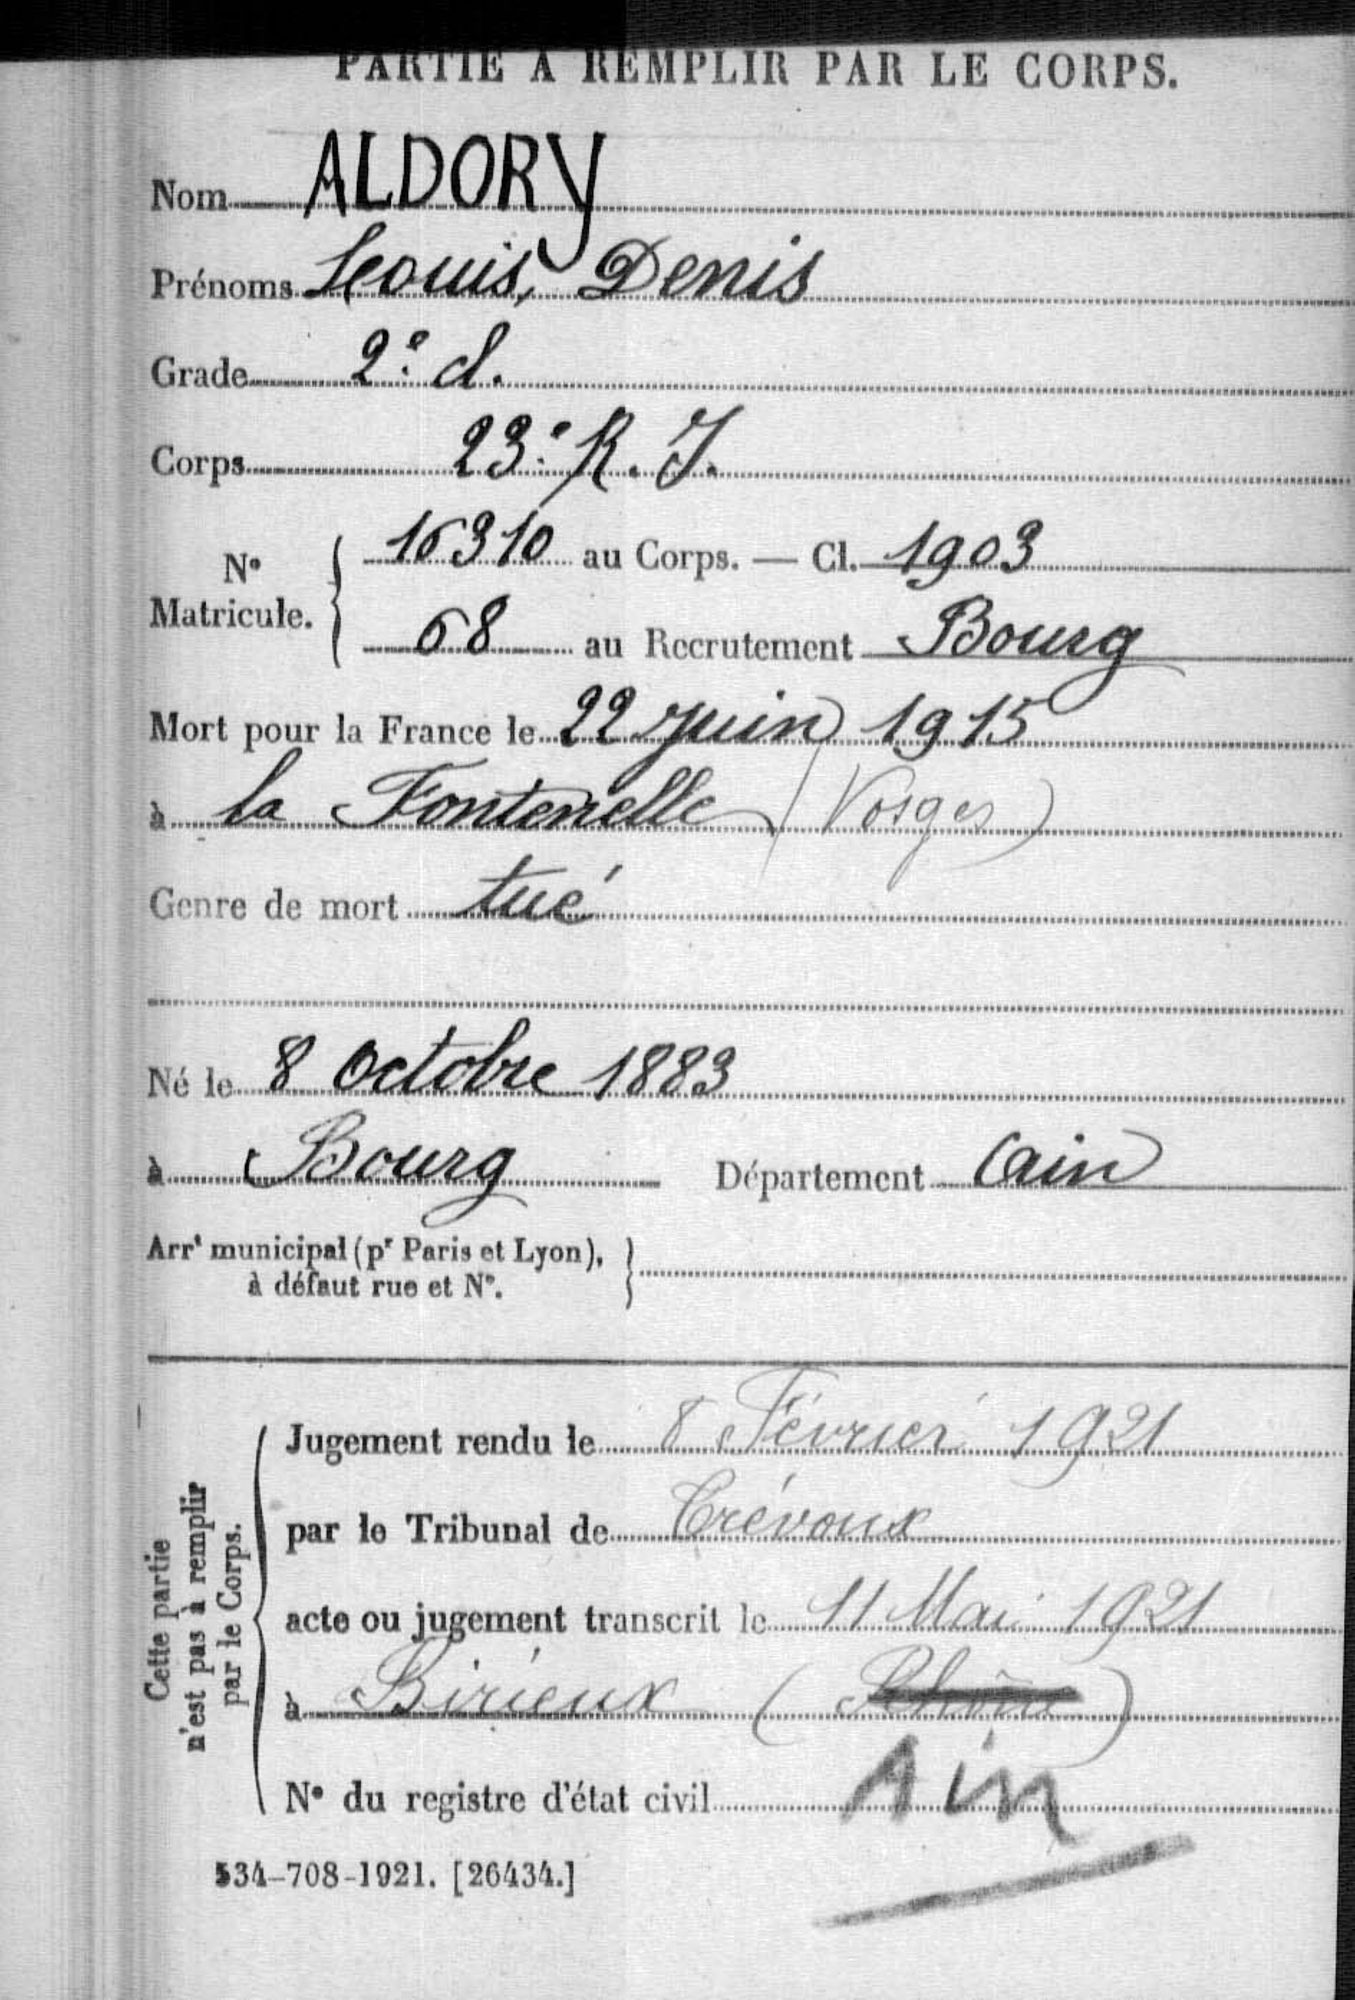 PARTIE A REMPLIR PAR LE CORPS.
Nom ALDORY
Prénoms Louis, Denis
Grade 2e cl.
Corps 23e R. I.
No Matricule. 16310 au Corps. — Cl. 1903
68 au Recrutement Bourg
Mort pour la France le 22 juin 1915
à la Fontenelle (Vosges)
Genre de mort tué
Né le 8 Octobre 1883
à Bourg Département Ain
Arrt municipal (pr Paris et Lyon),
à défaut rue et No.
Cette partie
n'est pas à remplir
par le Corps.
Jugement rendu le 8 Février 1921
par le Tribunal de Trévoux
acte ou jugement transcrit le 11 Mai 1921
à Birieux (Rhône)
Ain
No du registre d'état civil
534-708-1921. [26434.]